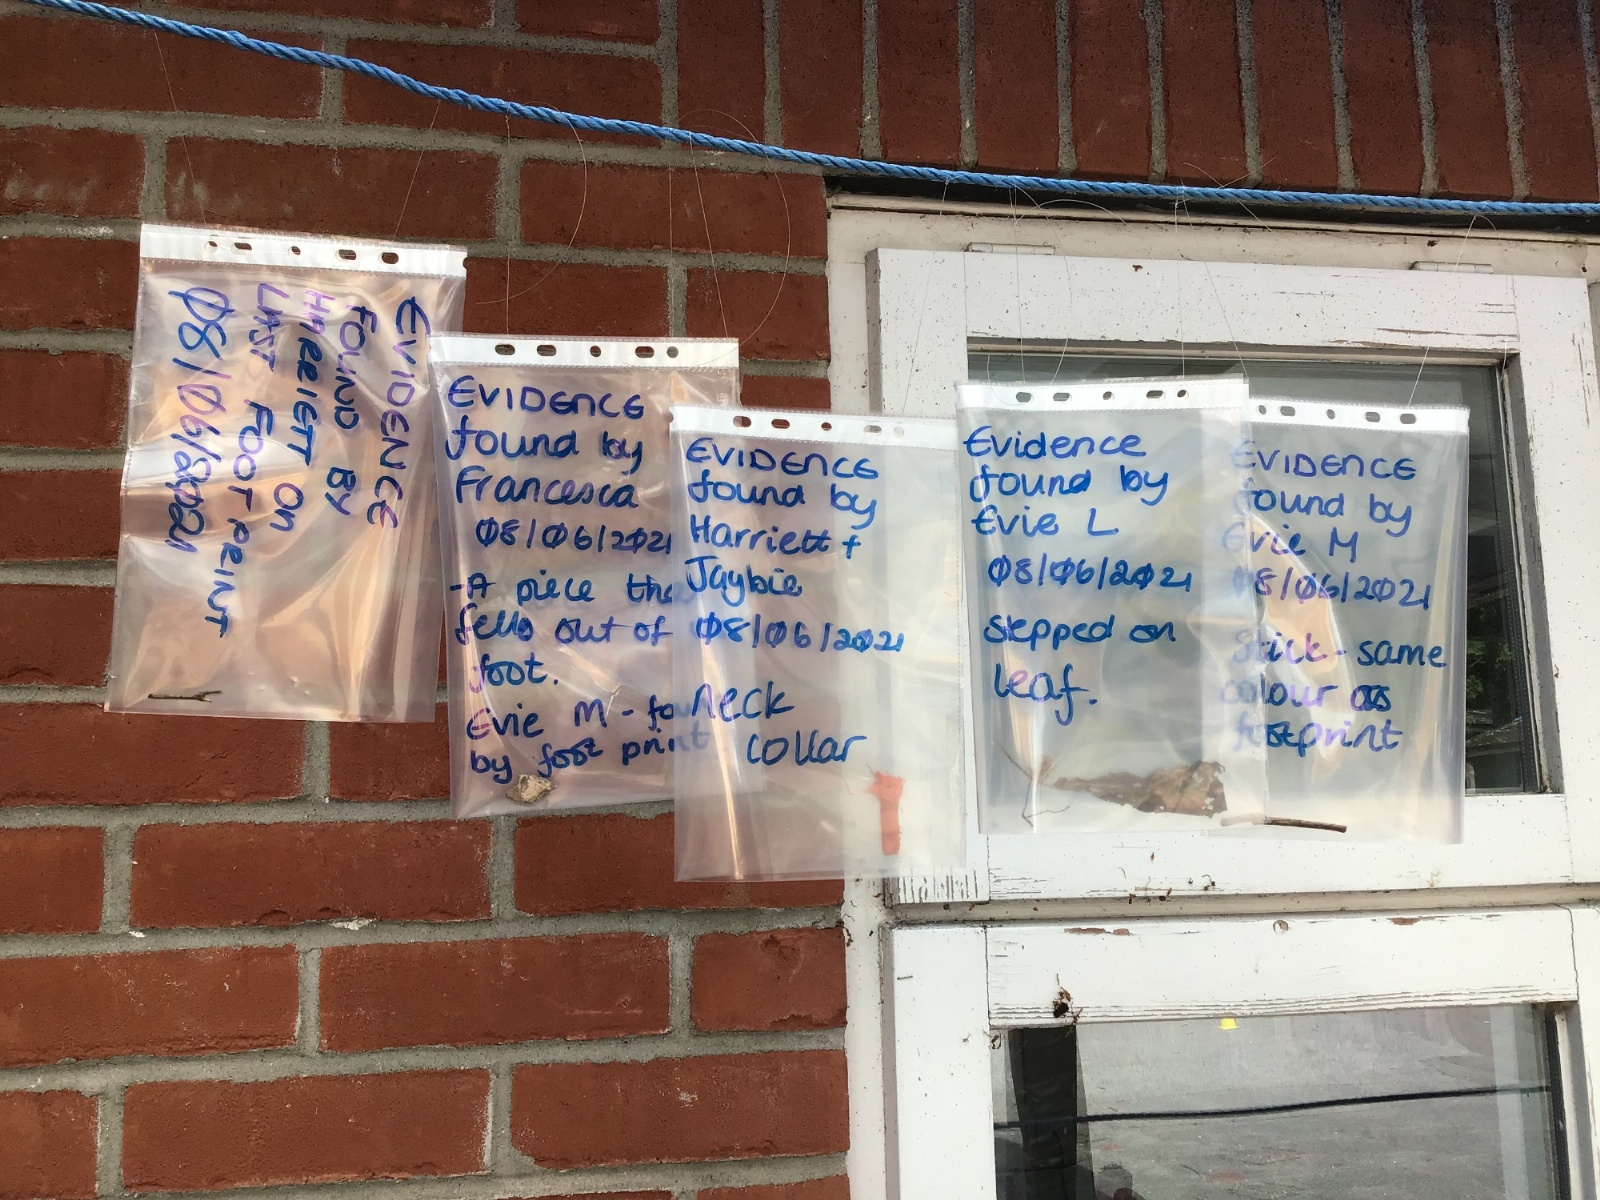 EVIDENCE
FOUND BY
HARRIETT ON
LAST FOOTPRINT
08/06/2021
EVIDENCE
found by
Francesca
08/06/2021
-A piece tha
fells out of
foot.
Evie M - fo
by foot print
EVIDENCE
found by
Harriett +
Jaybie
08/06/2021
neck
collar
Evidence
found by
Evie L
08/06/2021
stepped on
leaf.
EVIDENCE
found by
Evie M
08/06/2021
stick - same
colour as
footprint